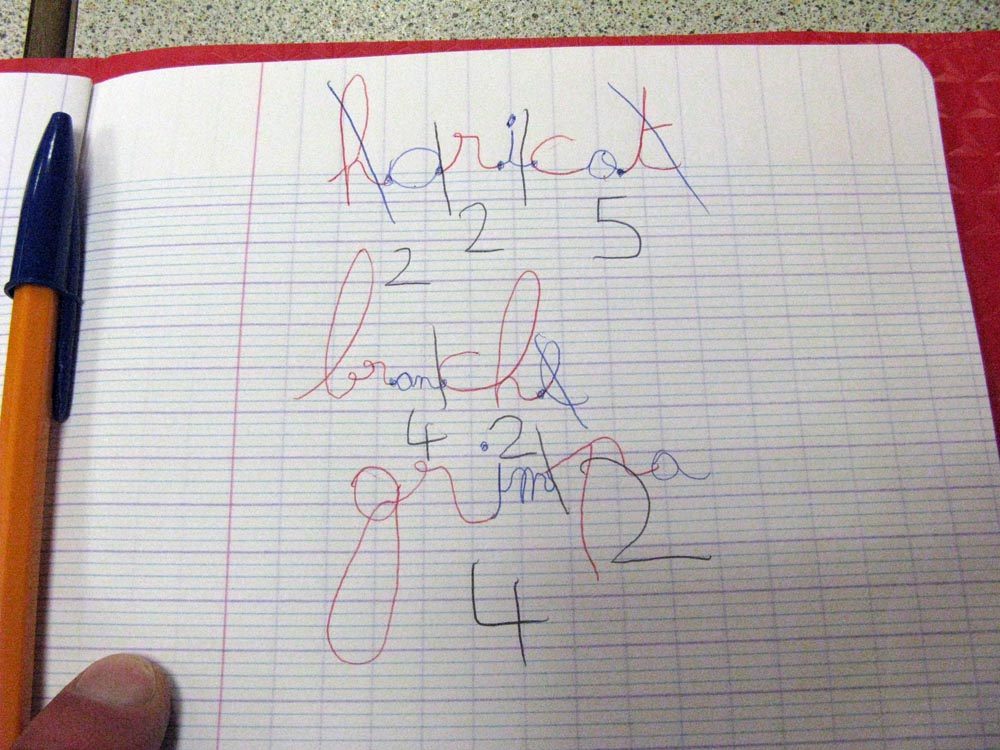 haricot
2 2 5
branche
4 2
grimpa
4 2